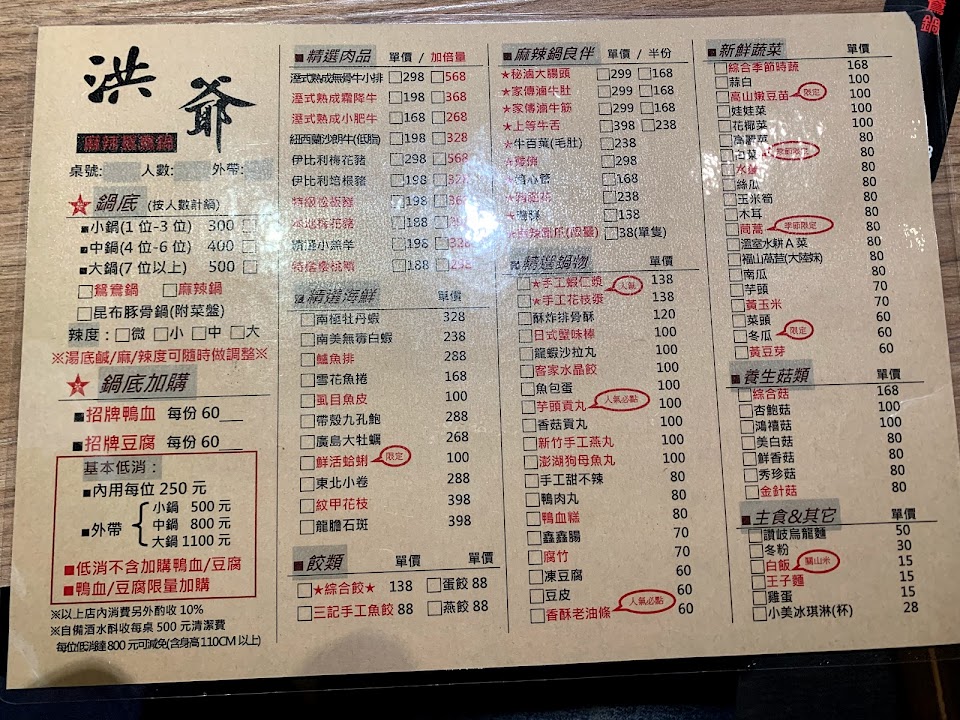 洪爺
麻辣鴛鴦鍋
桌號: 人數: 外帶:
鍋底 (按人數計鍋)
小鍋(1位-3位) 300
中鍋(4位-6位) 400
大鍋(7位以上) 500
鴛鴦鍋 麻辣鍋
昆布豚骨鍋(附菜盤)
辣度: 微 小 中 大
※湯底鹹/麻/辣度可隨時做調整※
鍋底加購
招牌鴨血 每份60
招牌豆腐 每份60
基本低消:
內用每位250元
外帶 小鍋 500元
中鍋 800元
大鍋1100元
低消不含加購鴨血/豆腐
鴨血/豆腐限量加購
※以上店內消費另外酌收10%
※自備酒水酙收每桌500元清潔費
每位低消達800元可減免(含身高110CM以上)
精選肉品 單價 / 加倍量
溼式熟成無骨牛小排 298 568
溼式熟成霜降牛 198 368
溼式熟成小肥牛 168 268
紐西蘭沙朗牛(低脂) 198 328
伊比利梅花豬 298 568
伊比利培根豬 198
188
198
188
精選海鮮 單價
南極牡丹蝦 328
南美無毒白蝦 238
鱸魚排 288
雪花魚捲 168
虱目魚皮 100
帶殼九孔鮑 288
廣島大牡蠣 268
鮮活蛤蜊 限定 100
東北小卷 288
紋甲花枝 398
龍膽石斑 398
餃類 單價 單價
★綜合餃★ 138 蛋餃 88
三記手工魚餃 88 燕餃 88
麻辣鍋良伴 單價 / 半份
★秘滷大腸頭 299 168
★家傳滷牛肚 299 168
★家傳滷牛筋 299 168
★上等牛舌 398 238
★牛百葉(毛肚) 238
298
168
238
138
38(單隻)
精選鍋物 單價
★手工蝦仁漿 人氣 138
★手工花枝漿 138
酥炸排骨酥 120
日式蟹味棒 100
龍蝦沙拉丸 100
客家水晶餃 100
魚包蛋 100
芋頭貢丸 人氣必點 100
香菇貢丸 100
新竹手工燕丸 100
澎湖狗母魚丸 100
手工甜不辣 80
鴨肉丸 80
鴨血糕 80
鑫鑫腸 70
腐竹 70
凍豆腐 60
豆皮 60
香酥老油條 人氣必點 60
新鮮蔬菜 單價
綜合季節時蔬 168
蒜白 100
高山嫩豆苗 限定 100
娃娃菜 100
花椰菜 100
高麗菜 80
80
水蓮 80
絲瓜 80
玉米筍 80
木耳 80
茼蒿 季節限定 80
溫室水耕A菜 80
福山萵苣(大陸妹) 80
南瓜 80
芋頭 80
黃玉米 70
菜頭 60
冬瓜 限定 60
黃豆芽 60
養生菇類 單價
綜合菇 168
杏鮑菇 100
鴻禧菇 100
美白菇 80
鮮香菇 80
秀珍菇 80
金針菇 80
主食&其它 單價
讚岐烏龍麵 50
冬粉 30
白飯 關山米 15
王子麵 15
雞蛋 15
小美冰琪淋(杯) 28